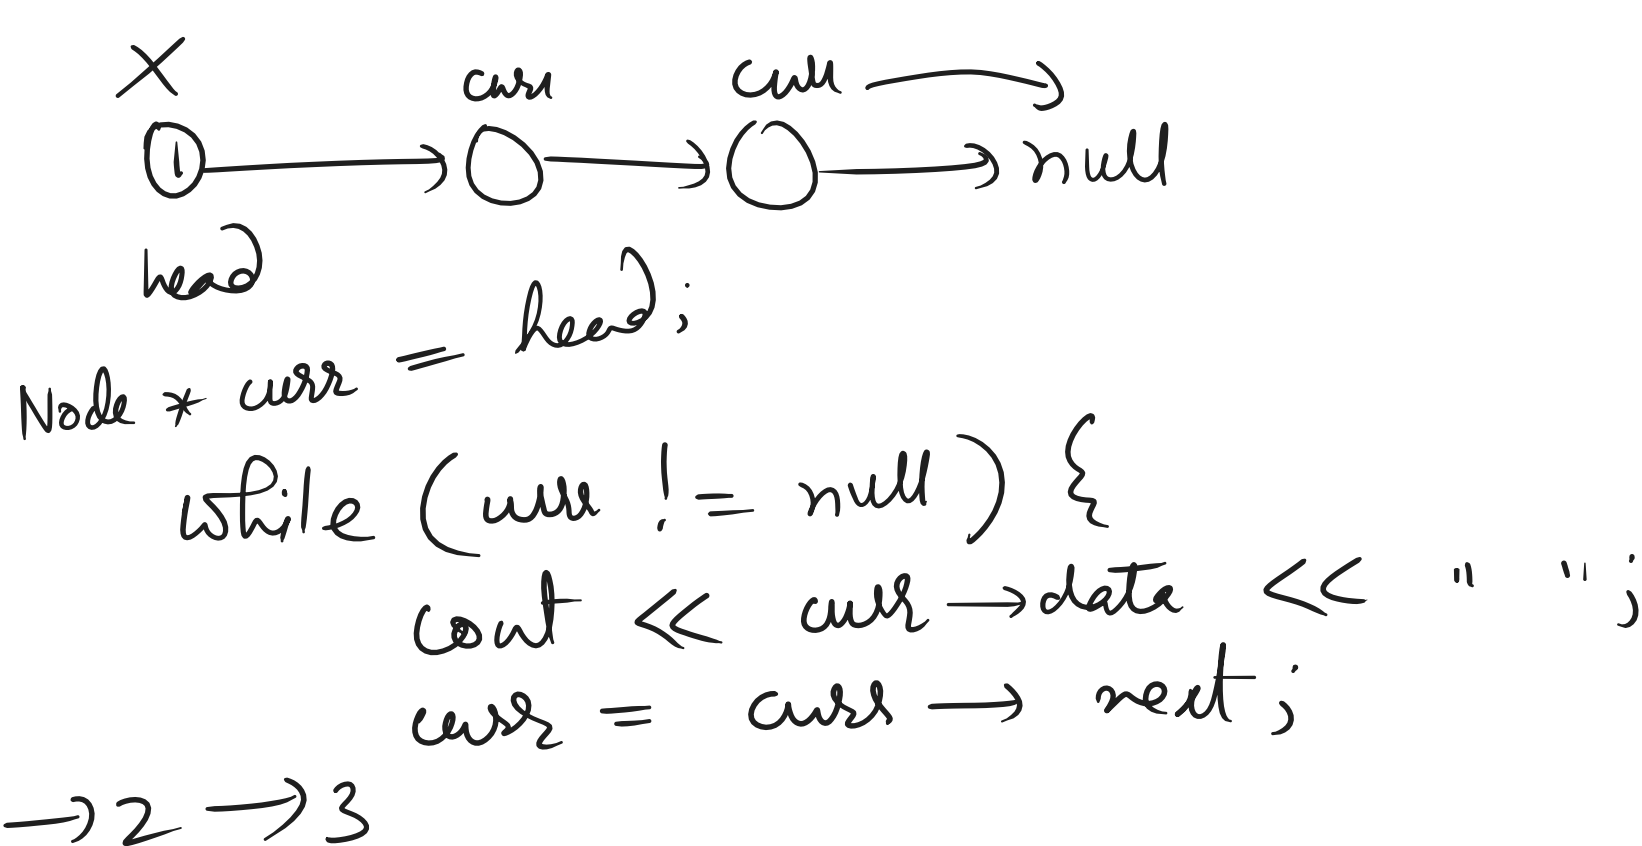 X curr curr →
1 → → → null
head
Node * curr = head;
while (curr != null) {
cout << curr → data << " ";
curr = curr → next;
→ 2 → 3